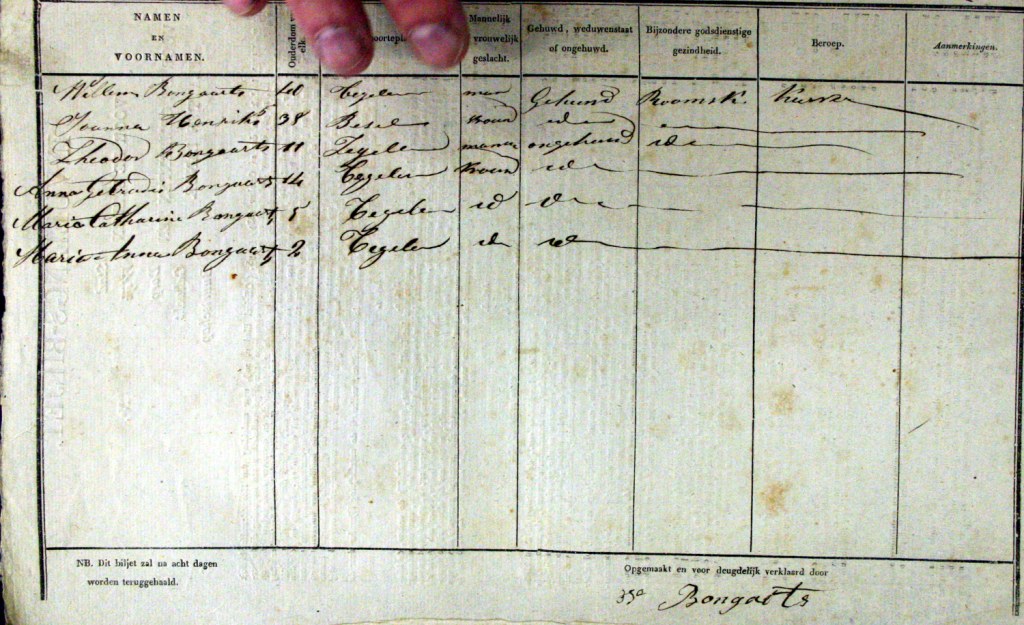 NAMEN EN VOORNAMEN. Ouderdom elk. Mannelijk vrouwelijk geslacht. Gehuwd, weduwenstaat of ongehuwd. Bijzondere godsdienstige gezindheid. Beroep. Aanmerkingen.
Willem Bongaarts 40 Tegelen man Gehuwd Roomsk
Joanna Henriks 38 Besel vrouw
Theodor Bongaarts 11 Tegelen ongehuwd
Anna Getrudis Bongaarts 14 Tegelen vrouw
Maria Catharina Bongaarts 5 Tegelen id
Maria Anna Bongaarts 2 Tegelen
NB. Dit biljet zal na acht dagen
worden teruggehaald.
Opgemaakt en voor deugdelijk verklaard door
Bongaerts